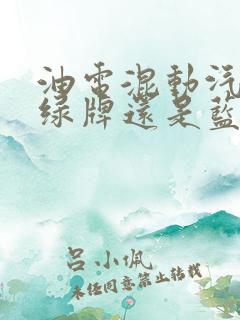 油電混動汽
綠牌還是藍
呂小佩
未經同意禁止轉載